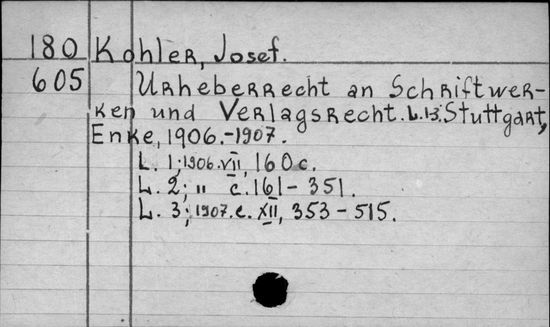 180 Kohler, Josef.
605 Urheberrecht an Schriftwer-
ken und Verlagsrecht. L. 1-3. Stuttgart,
Enke, 1906.-1907.
L. 1; 1906. VII, 160 c.
L. 2; " c. 161-351.
L. 3; 1907. c. XII, 353-515.